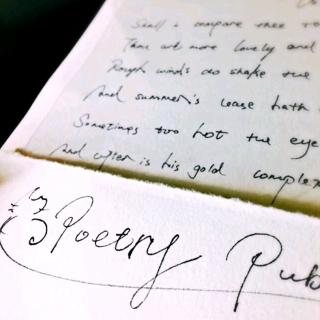 Shall i compare thee to
Thou art more lovely and
Rough winds do shake the
And summer's lease hath
Sometimes too hot the eye
And often is his gold complex
Poetry Pub